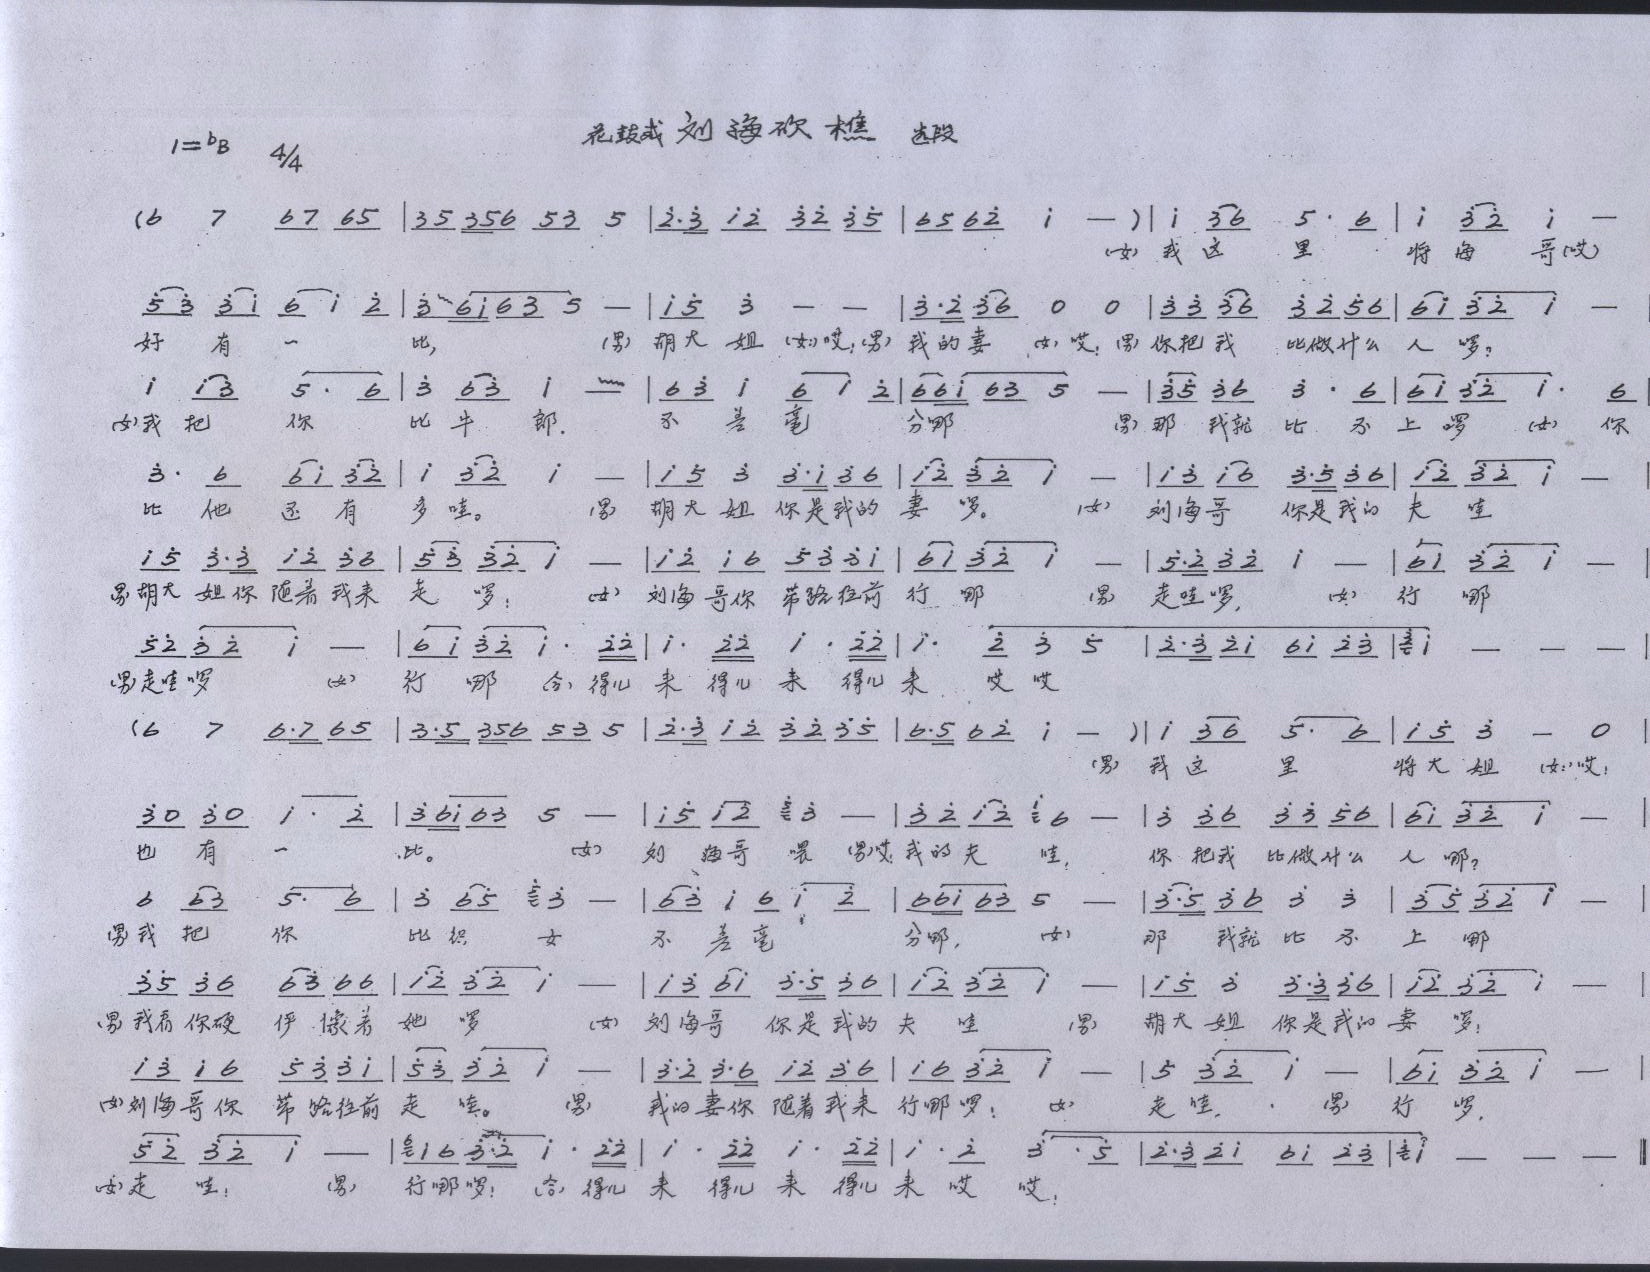 花鼓戏 刘海砍樵 选段
1=bB 4/4
(6 7 67 65 | 35 356 53 5 | 2·3 12 32 35 | 65 62 1 — ) | 1 36 5· 6 | 1 32 1 —
(女) 我 这 里 将 海 哥 (哎)
53 31 6 1 2 | 3 61 63 5 — | 15 3 — — | 3·2 36 0 0 | 33 36 32 56 | 61 32 1 — |
好 有 一 比, (男) 胡大 姐 (女:) 哎; (男) 我的妻 (女) 哎; (男) 你把我 比做什么 人 啰?
1 13 5· 6 | 3 63 1 | 63 1 6 1 2 | 661 63 5 — | 35 36 3· 6 | 61 32 1· 6
(女) 我 把 你 比 牛 郎. 不 差 毫 分哪 (男) 那 我就 比 不 上 啰 (女) 你
3· 6 61 32 | 1 32 1 — | 15 3 3·1 36 | 12 32 1 — | 13 16 3·5 36 | 12 32 1 — |
比 他 还 有 多 哇。 (男) 胡大 姐 你是我的 妻 啰。 (女) 刘海哥 你是我的 夫 哇
15 3·3 12 36 | 53 32 1 — | 12 16 5331 | 61 32 1 — | 5·2 32 1 — | 61 32 1 — |
(男) 胡大 姐你 随着我来 走 啰; (女) 刘海哥你 带路往前 行 哪 (男) 走哇啰, (女) 行 哪
52 32 1 — | 61 32 1· 22 | 1· 22 1· 22 | 1· 2 3 5 | 2·3 21 61 23 | 1 — — — |
(男) 走哇啰 (女) 行 哪 (合) 得儿 来 得儿 来 得儿 来 哎 哎
(6 7 6·7 65 | 3·5 356 53 5 | 2·3 12 32 35 | 6·5 62 1 — ) | 1 36 5· 6 | 15 3 — 0 |
(男) 我 这 里 将 大 姐 (女:) 哎;
30 30 1· 2 | 36163 5 — | 15 12 3 — | 32 12 6 — | 3 36 33 56 | 61 32 1 — |
也 有 一 比。 (女) 刘 海哥 喂 (男) 哎; 我的夫 哇, 你 把我 比做什么 人 哪?
6 63 5· 6 | 3 65 3 — | 63 1 6 1 2 | 661 63 5 — | 3·5 36 3 3 | 35 32 1 — |
(男) 我 把 你 比 织 女 不 差 毫 分哪, (女) 那 我就 比 不 上 哪
35 36 63 66 | 12 32 1 — | 13 61 3·5 36 | 12 32 1 — | 15 3 3·3 36 | 12 32 1 — |
(男) 我看 你硬 伊像着 她 啰 (女) 刘海哥 你是我的 夫 哇 (男) 胡大 姐 你是我的 妻 啰;
13 16 5331 | 53 32 1 — | 3·2 3·6 12 36 | 16 32 1 — | 5 32 1 — | 61 32 1 — |
(女) 刘海哥你 带路往前 走 哇。 (男) 我的妻你 随着我来 行哪啰; (女) 走 哇, (男) 行 啰,
52 32 1 — | 16 3·2 1· 22 | 1· 22 1· 22 | 1· 2 3· 5 | 2·3 21 61 23 | 1 — — — ‖
(女) 走 哇; (男) 行哪啰; (合) 得儿 来 得儿 来 得儿 来 哎 哎;